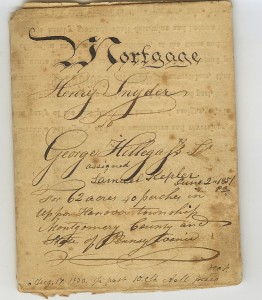 Mortgage
Henry Snyder
to
George Hillegass
assigned
Samuel Kepler June 2nd 1851
For 62 acres 40 perches in
Upper Hanover township
Montgomery County and
State of Pennsylvania